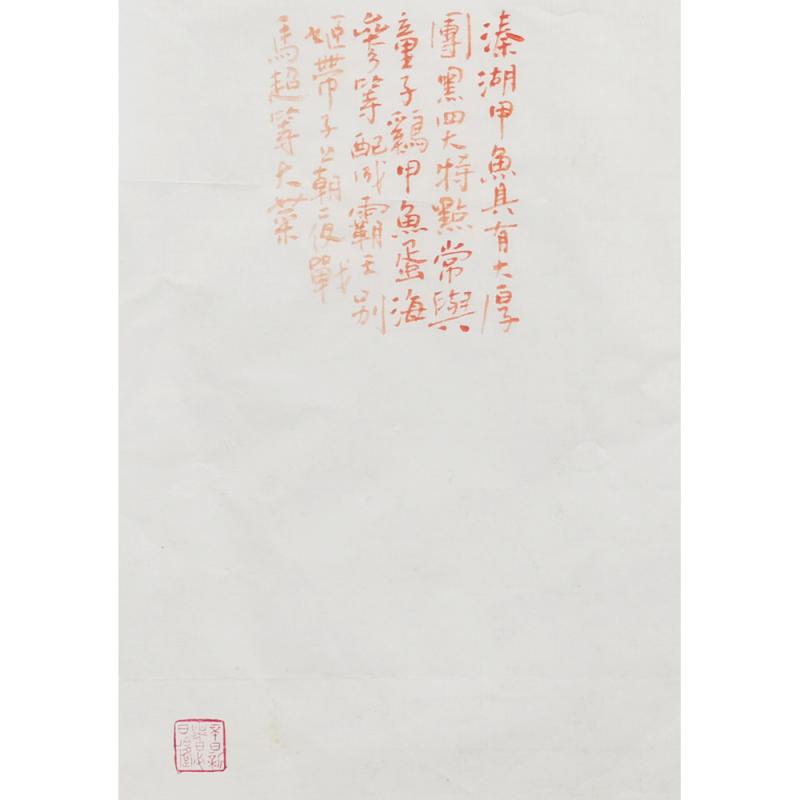 溱湖甲魚具有大厚
團黑四大特點常與
童子鷄甲魚蛋海
參等配成霸王别
姬帶子上朝夜戰
馬超等大菜